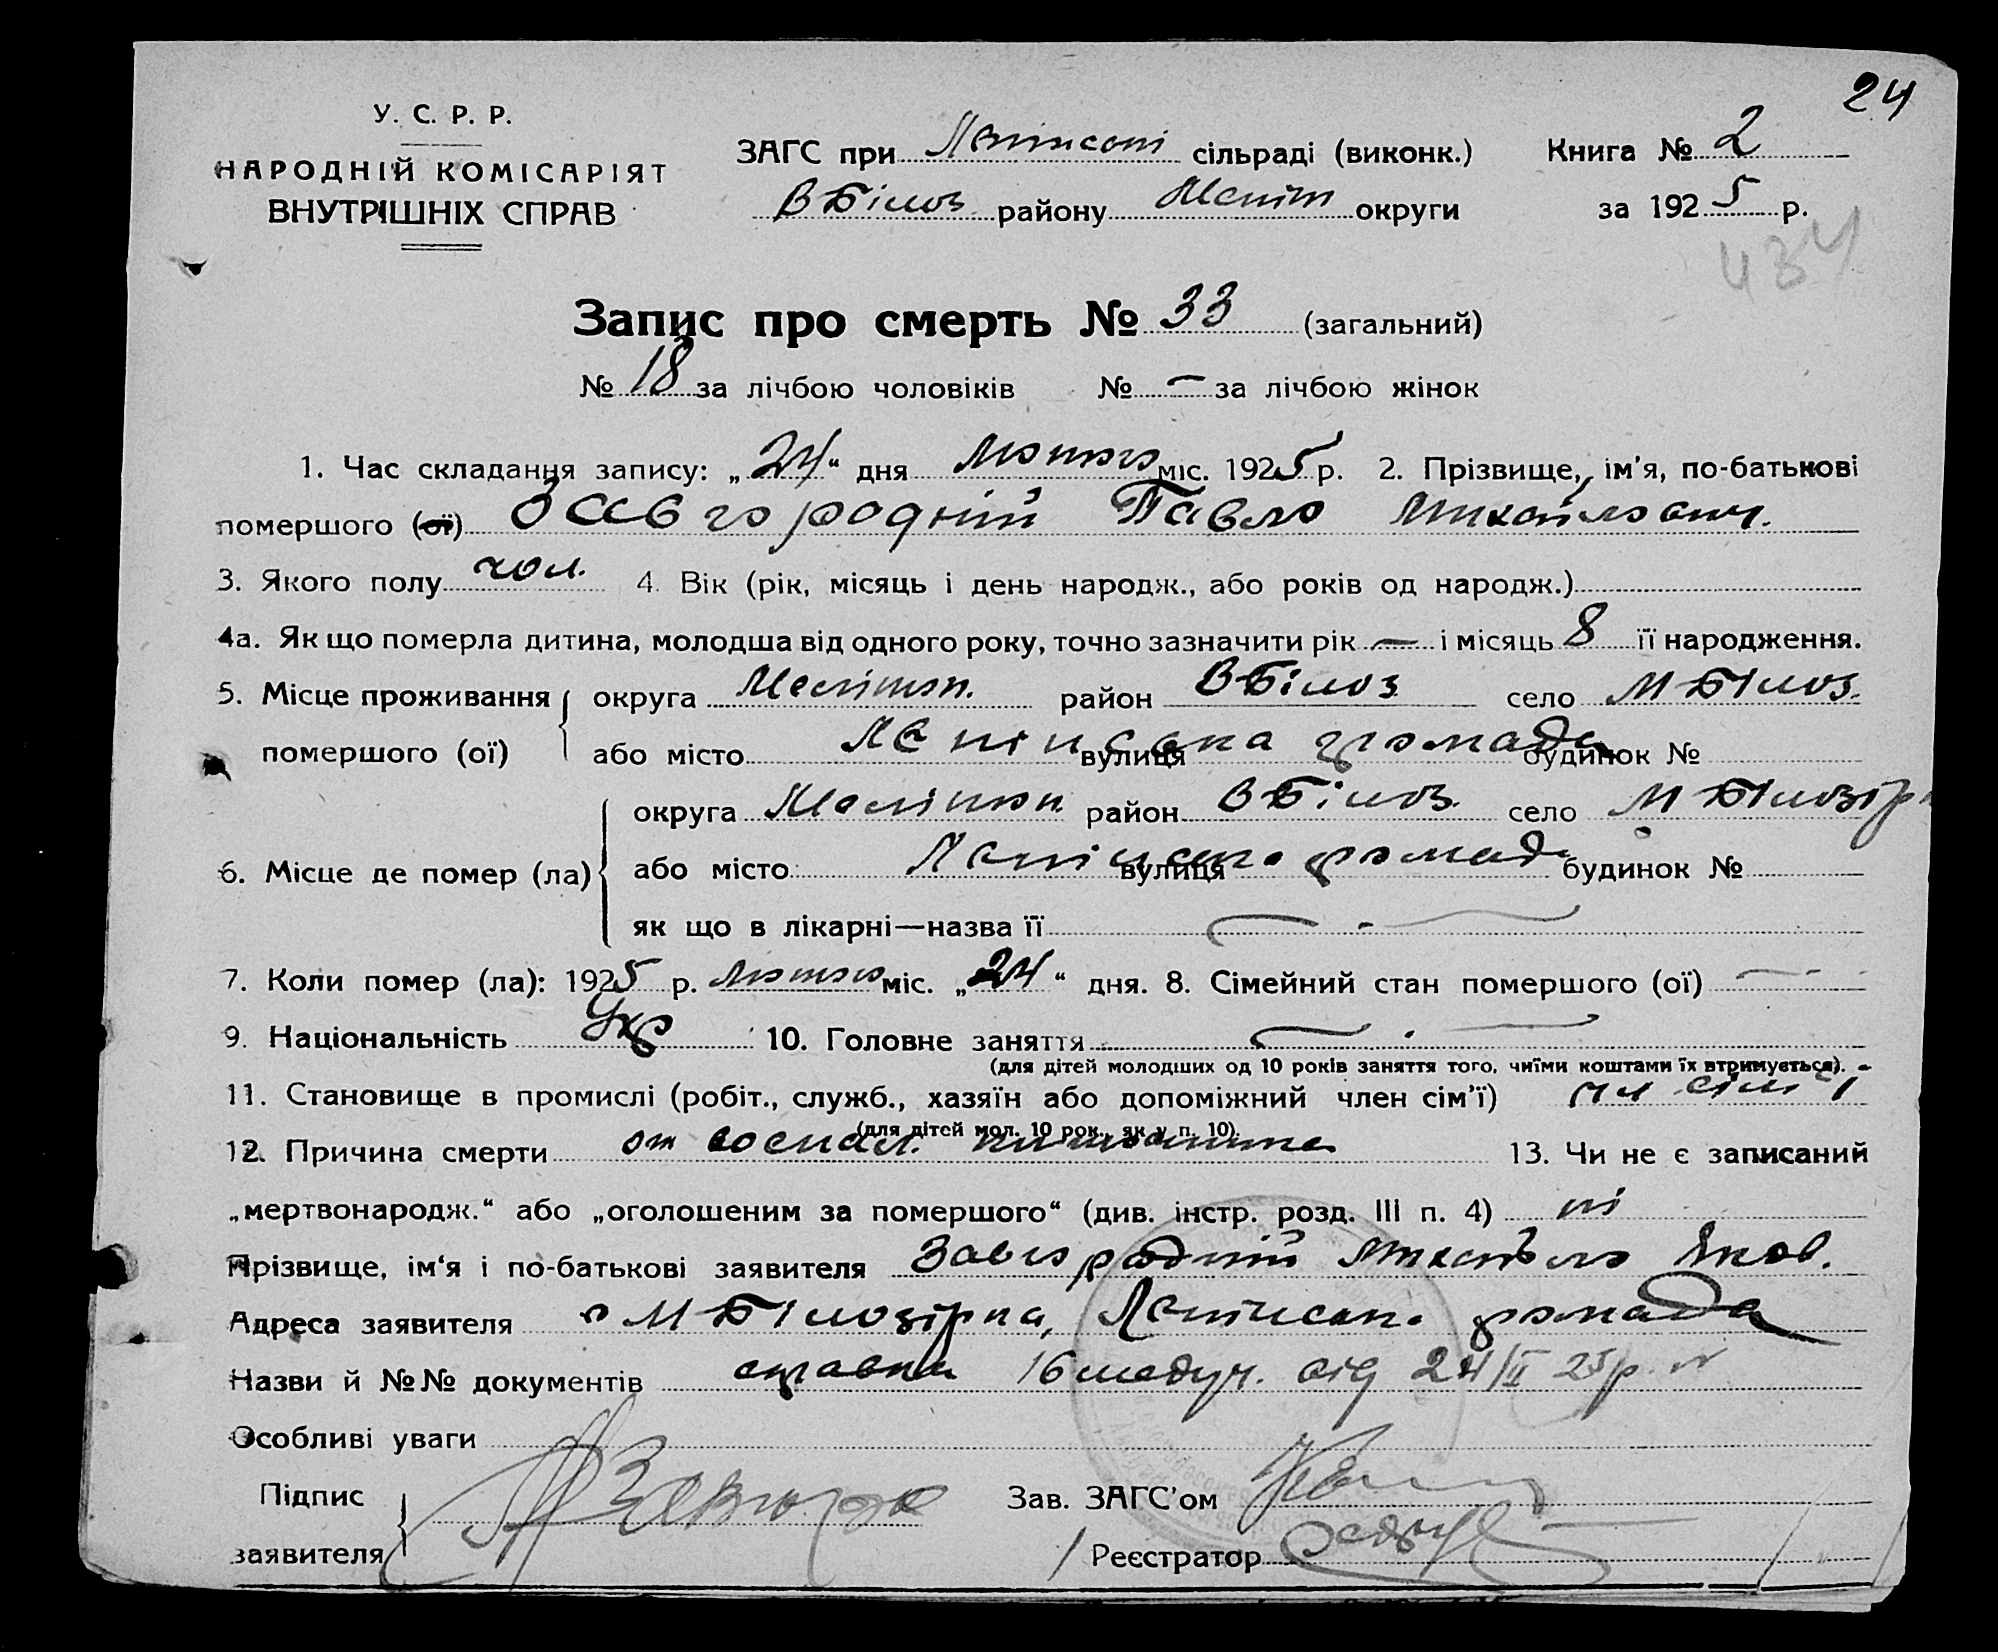 24
У. С. Р. Р.
НАРОДНІЙ КОМІСАРІЯТ
ВНУТРІШНІХ СПРАВ
ЗАГС при сільраді (виконк.)
В Білоз. району Меліт округи
Книга № 2
за 1925 р.
434
Запис про смерть № 33 (загальний)
№ 18 за лічбою чоловіків № — за лічбою жінок
1. Час складання запису: „24“ дня лютого міс. 1925 р. 2. Прізвище, ім’я, по-батькові
помершого (ої) Завгородній Павло Михайлович.
3. Якого полу чол. 4. Вік (рік, місяць і день народж., або років од народж.)
4а. Як що померла дитина, молодша від одного року, точно зазначити рік — і місяць 8 її народження.
5. Місце проживання округа Меліт район В Білоз село М Білоз.
помершого (ої) або місто Ленінська громада вулиця будинок №
6. Місце де помер (ла) округа район В Білоз. село М Білозірка
або місто Ленінська громада вулиця будинок №
як що в лікарні—назва її —
7. Коли помер (ла): 1925 р. лютого міс. „24“ дня. 8. Сімейний стан помершого (ої) —
9. Національність Укр 10. Головне заняття —
(для дітей молодших од 10 років заняття того, чиїми коштами їх втримується).
11. Становище в промислі (робіт., служб., хазяїн або допоміжний член сім’ї) чл сім’ї
(для дітей мол. 10 рок., як у п. 10).
12. Причина смерти от воспал. 13. Чи не є записаний
„мертвонародж.“ або „оголошеним за помершого“ (див. інстр. розд. III п. 4) ні
Прізвище, ім‘я і по-батькові заявителя Завгородній Михайло Яков.
Адреса заявителя с М Білозірка, Ленінськ. громада
Назви й №№ документів справка від 24/II 25 р.
Особливі уваги
Підпис
заявителя
Зав. ЗАГС’ом
Реєстратор